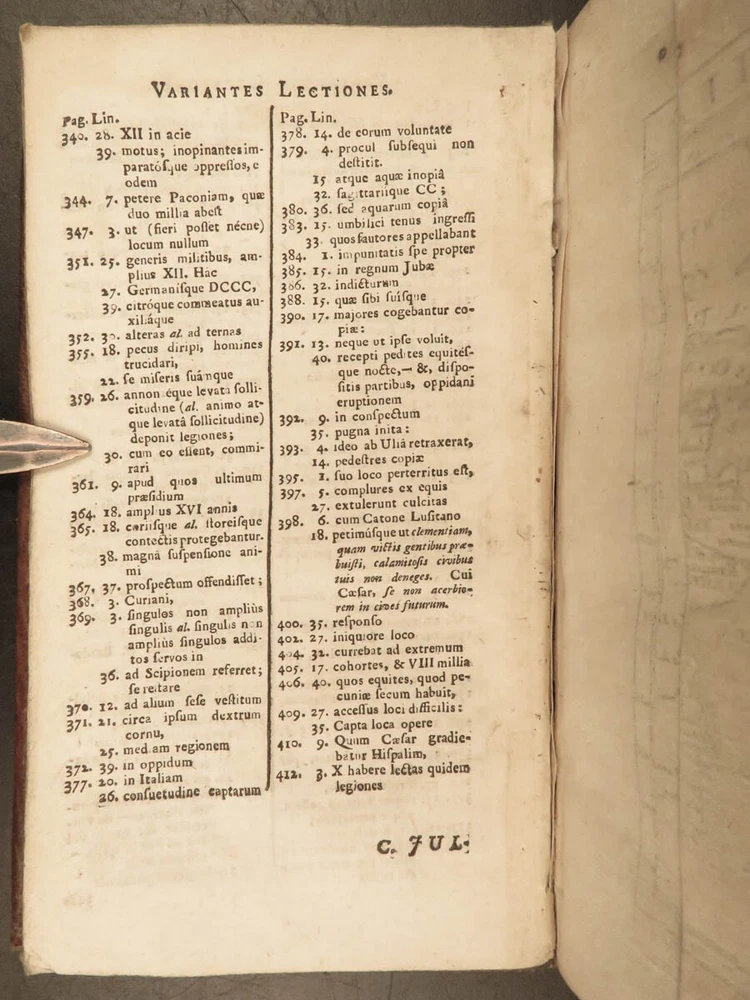 VARIANTES LECTIONES.
Pag. Lin.
340. 28. XII in acie
39. motus; inopinantes im-
paratósque oppressos, e
odem
344. 7. petere Paconiam, quæ
duo millia abest
347. 3. ut (fieri posset nécne)
locum nullum
351. 25. generis militibus, am-
plius XII. Hac
27. Germanisque DCCC,
39. citróque commeatus au-
xiláque
352. 30. alteras al. ad ternas
355. 18. pecus diripi, homines
trucidari,
22. se miseris suámque
359. 26. annon éque levata solli-
citudine (al. animo at-
que levatâ sollicitudine)
deponit legiones;
30. cum eo essent, commi-
rari
361. 9. apud quos ultimum
præsidium
364. 18. amplius XVI annis
365. 18. coriisque al. storeisque
contectis protegebantur.
38. magnâ suspensione ani-
mi
367. 37. prospectum offendisset;
368. 3. Curiani,
369. 3. singulos non ampliùs
singulis al. singulis non
ampliùs singulos addi-
tos servos in
36. ad Scipionem referret;
se reitare
370. 12. ad alium sese vestitum
371. 21. circa ipsum dextrum
cornu,
25. mediam regionem
372. 39. in oppidum
377. 20. in Italiam
26. consuetudine captarum
Pag. Lin.
378. 14. de eorum voluntate
379. 4. procul subsequi non
destitit.
15. atque aquæ inopiâ
32. sagittariique CC;
380. 36. sed aquarum copiâ
383. 15. umbilici tenus ingressi
33. quos fautores appellabant
384. 1. impunitatis spe propter
385. 15. in regnum Jubæ
386. 32. indicturum
388. 15. quæ sibi suisque
390. 17. majores cogebantur co-
piæ:
391. 13. neque ut ipse voluit,
40. recepti pedites equités-
que nocte,— &, dispo-
sitis partibus, oppidani
eruptionem
392. 9. in conspectum
35. pugna inita:
393. 4. ideo ab Uliâ retraxerat,
14. pedestres copiæ
395. 1. suo loco perterritus est,
397. 5. complures ex equis
27. extulerunt culcitas
398. 6. cum Catone Lusitano
18. petimúsque ut clementiam,
quam victis gentibus præ-
buisti, calamitosis civibus
tuis non deneges. Cui
Cæsar, se non acerbio-
rem in cives futurum.
400. 35. responso
402. 27. iniquiore loco
404. 32. currebat ad extremum
405. 17. cohortes, & VIII millia
406. 40. quos equites, quod pe-
cuniæ secum habuit,
409. 27. accessus loci difficilis:
35. Capta loca opere
410. 9. Quum Cæsar gradie-
batur Hispalim,
412. 3. X habere lectas quidem
legiones
C. JUL.